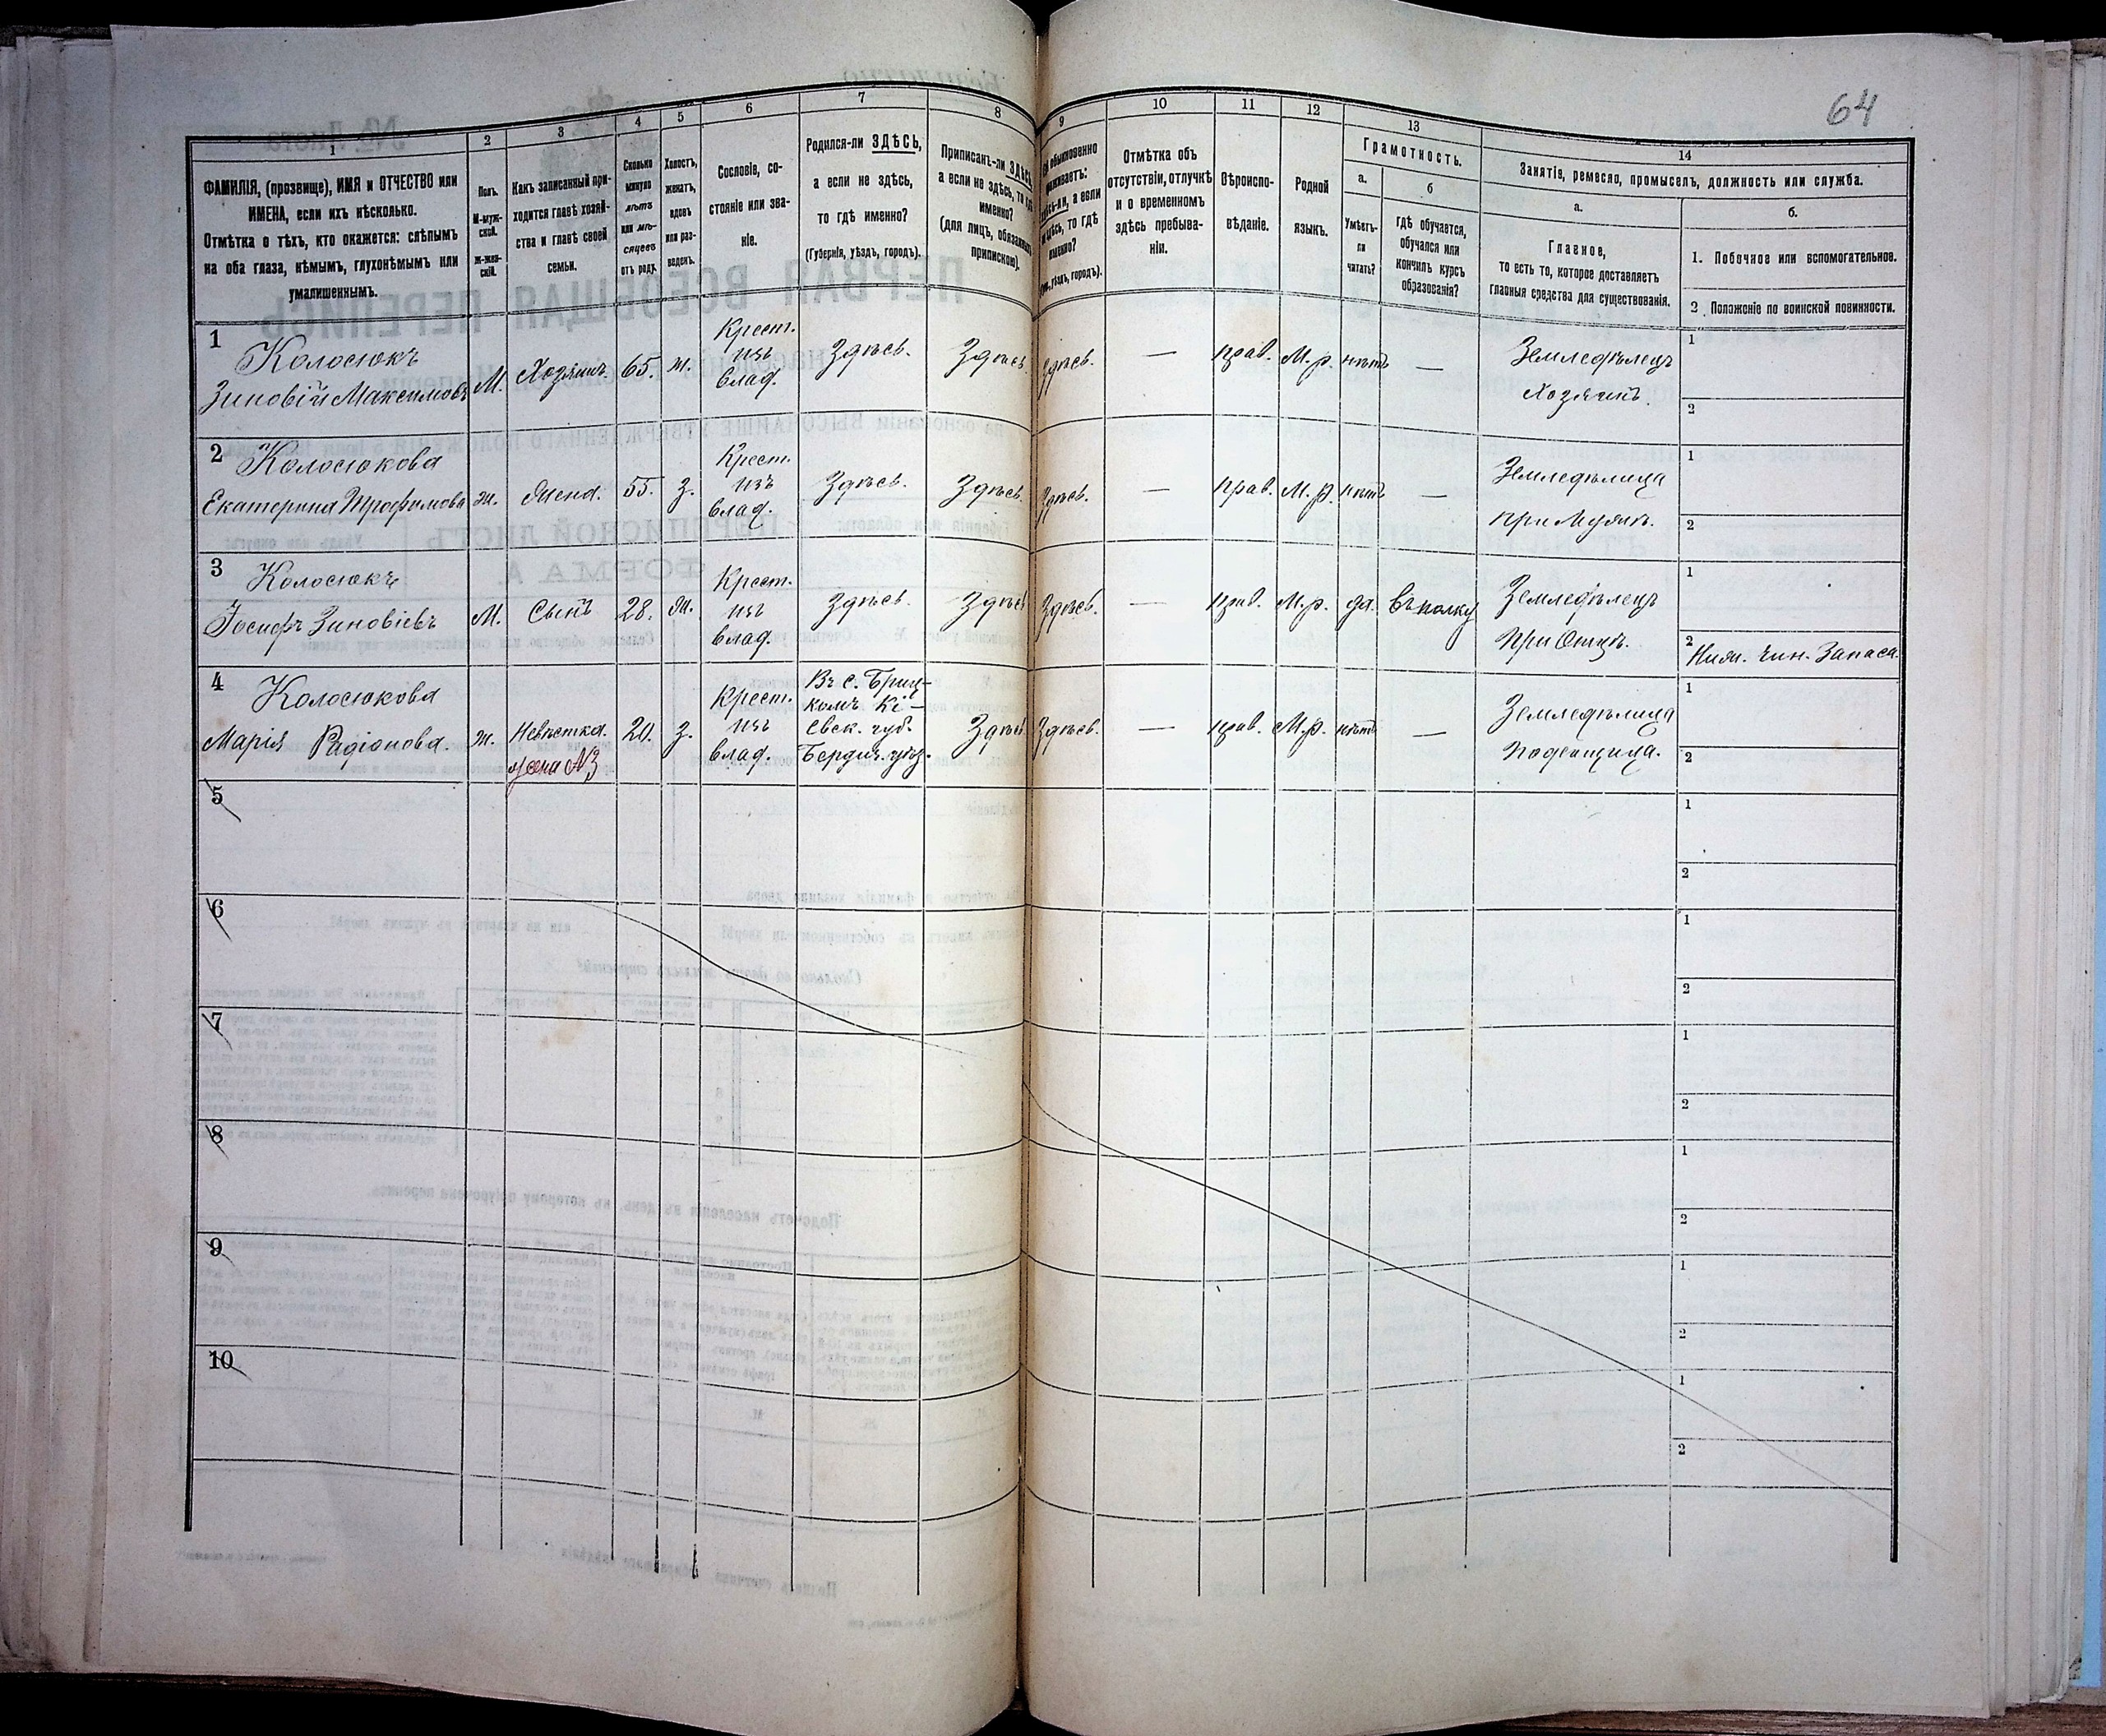 64
1
2
3
4
5
6
7
8
9
10
11
12
13
14
ФАМИЛІЯ, (прозвище), ИМЯ и ОТЧЕСТВО или
ИМЕНА, если ихъ нѣсколько.
Отмѣтка о тѣхъ, кто окажется: слѣпымъ
на оба глаза, нѣмымъ, глухонѣмымъ или
умалишеннымъ.
Полъ.
М-муж-
ской.
Ж-жен-
скій.
Какъ записанный при-
ходится главѣ хозяй-
ства и главѣ своей
семьи.
Сколько
минуло
лѣтъ
или мѣ-
сяцевъ
отъ роду.
Холостъ,
женатъ,
вдовъ
или раз-
веденъ.
Сословіе, со-
стояніе или зва-
ніе.
Родился-ли ЗДѢСЬ,
а если не здѣсь,
то гдѣ именно?
(Губернія, уѣздъ, городъ).
Приписанъ-ли ЗДѢСЬ,
а если не здѣсь, то гдѣ
именно?
(для лицъ, обязанныхъ
припискою).
обыкновенно
а если
то гдѣ
уѣздъ, городъ).
Отмѣтка объ
отсутствіи, отлучкѣ
и о временномъ
здѣсь пребыва-
ніи.
Вѣроиспо-
вѣданіе.
Родной
языкъ.
Грамотность.
а.
б
Умѣетъ-
ли
читать?
гдѣ обучается,
обучался или
кончилъ курсъ
образованія?
Занятіе, ремесло, промыселъ, должность или служба.
а.
б.
Главное,
то есть то, которое доставляетъ
главныя средства для существованія.
1. Побочное или вспомогательное.
2. Положеніе по воинской повинности.
1
Колосюкъ
Зиновій Максимовъ
М.
Хозяинъ.
65.
ж.
Крест.
изъ
влад.
Здѣсь.
Здѣсь.
Здѣсь.
—
прав.
М. р.
нѣтъ
—
Земледѣлецъ
Хозяинъ.
1
2
2
Колосюкова
Екатерина Трофимова
ж.
Жена.
55.
з.
Крест.
изъ
влад.
Здѣсь.
Здѣсь.
Здѣсь.
—
прав.
М. р.
нѣтъ
—
Земледѣлица
при Мужѣ.
1
2
3
Колосюкъ
Іосифъ Зиновіевъ
М.
Сынъ
28.
ж.
Крест.
изъ
влад.
Здѣсь.
Здѣсь
Здѣсь.
—
прав.
М. р.
да.
въ полку
Земледѣлецъ
при Отцѣ.
1
2
Ниж. чин. Запаса.
4
Колосюкова
Марія Радіонова.
ж.
Невѣстка.
жена №3
20.
з.
Крест.
изъ
влад.
Въ с. Бриц-
комъ Кі-
евск. губ.
Бердич. уѣз.
Здѣсь
Здѣсь.
—
прав.
М. р.
нѣтъ
—
Земледѣлица
Поденщица.
1
2
5
1
2
6
1
2
7
1
2
8
1
2
9
1
2
10
1
2